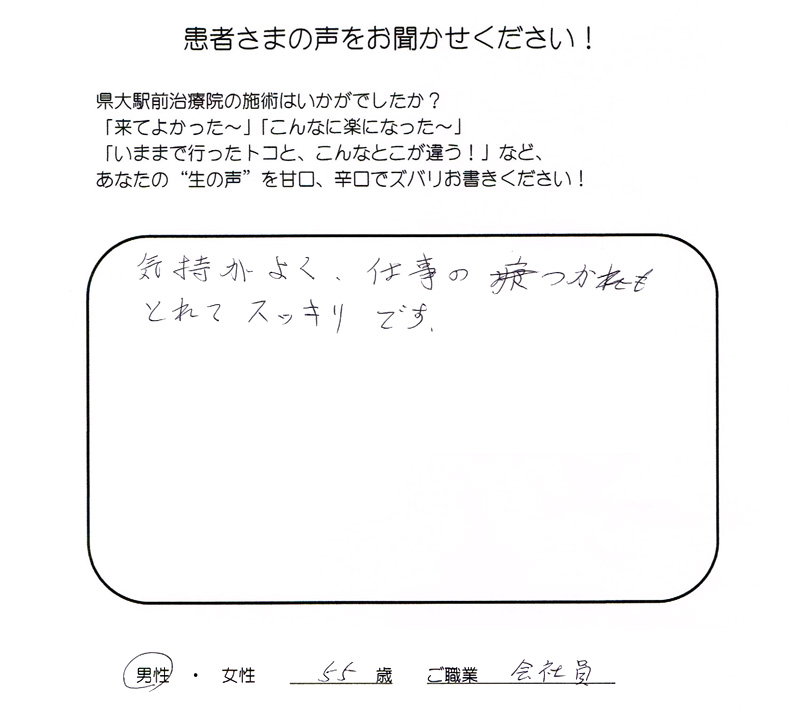 患者さまの声をお聞かせください！
県大駅前治療院の施術はいかがでしたか？
「来てよかった～」「こんなに楽になった～」
「いままで行ったトコと、こんなとこが違う！」など、
あなたの“生の声”を甘口、辛口でズバリお書きください！
気持がよく、仕事の つかれも
とれてスッキリです。
男性 ・ 女性 55 歳 ご職業 会社員